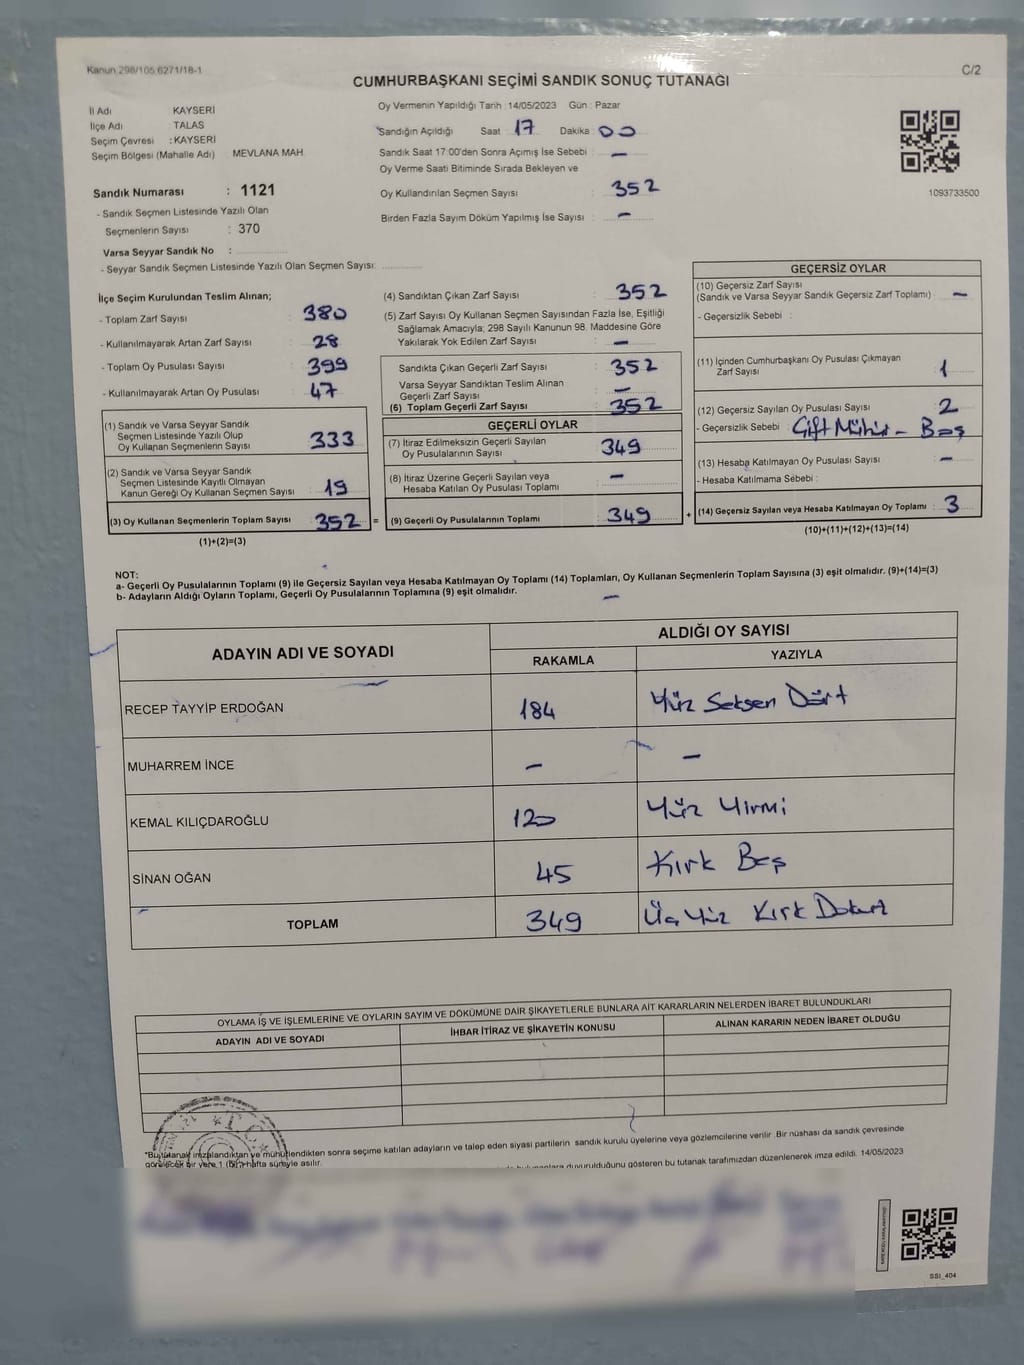 Kanun 298/105,6271/18-1
C/2
CUMHURBAŞKANI SEÇİMİ SANDIK SONUÇ TUTANAĞI
İl Adı KAYSERİ
İlçe Adı TALAS
Seçim Çevresi : KAYSERİ
Seçim Bölgesi (Mahalle Adı) MEVLANA MAH.
Sandık Numarası : 1121
- Sandık Seçmen Listesinde Yazılı Olan
Seçmenlerin Sayısı : 370
Varsa Seyyar Sandık No :
- Seyyar Sandık Seçmen Listesinde Yazılı Olan Seçmen Sayısı:
Oy Vermenin Yapıldığı Tarih : 14/05/2023 Gün : Pazar
Sandığın Açıldığı Saat 17 Dakika 00
Sandık Saat 17:00'den Sonra Açımış İse Sebebi : –
Oy Verme Saati Bitiminde Sırada Bekleyen ve
Oy Kullandırılan Seçmen Sayısı : 352
Birden Fazla Sayım Döküm Yapılmış İse Sayısı : –
1093733500
İlçe Seçim Kurulundan Teslim Alınan;
- Toplam Zarf Sayısı : 380
- Kullanılmayarak Artan Zarf Sayısı : 28
- Toplam Oy Pusulası Sayısı : 399
- Kullanılmayarak Artan Oy Pusulası : 47
(1) Sandık ve Varsa Seyyar Sandık
Seçmen Listesinde Yazılı Olup
Oy Kullanan Seçmenlerin Sayısı : 333
(2) Sandık ve Varsa Seyyar Sandık
Seçmen Listesinde Kayıtlı Olmayan
Kanun Gereği Oy Kullanan Seçmen Sayısı : 19
(3) Oy Kullanan Seçmenlerin Toplam Sayısı : 352 =
(1)+(2)=(3)
(4) Sandıktan Çıkan Zarf Sayısı : 352
(5) Zarf Sayısı Oy Kullanan Seçmen Sayısından Fazla İse, Eşitliği
Sağlamak Amacıyla; 298 Sayılı Kanunun 98. Maddesine Göre
Yakılarak Yok Edilen Zarf Sayısı : –
Sandıkta Çıkan Geçerli Zarf Sayısı : 352
Varsa Seyyar Sandıktan Teslim Alınan
Geçerli Zarf Sayısı : –
(6) Toplam Geçerli Zarf Sayısı : 352
GEÇERLİ OYLAR
(7) İtiraz Edilmeksizin Geçerli Sayılan
Oy Pusulalarının Sayısı : 349
(8) İtiraz Üzerine Geçerli Sayılan veya
Hesaba Katılan Oy Pusulası Toplamı : –
(9) Geçerli Oy Pusulalarının Toplamı : 349 +
GEÇERSİZ OYLAR
(10) Geçersiz Zarf Sayısı
(Sandık ve Varsa Seyyar Sandık Geçersiz Zarf Toplamı) : –
- Geçersizlik Sebebi :
(11) İçinden Cumhurbaşkanı Oy Pusulası Çıkmayan
Zarf Sayısı : 1
(12) Geçersiz Sayılan Oy Pusulası Sayısı : 2
- Geçersizlik Sebebi : Çift Mühür – Boş
(13) Hesaba Katılmayan Oy Pusulası Sayısı : –
- Hesaba Katılmama Sebebi :
(14) Geçersiz Sayılan veya Hesaba Katılmayan Oy Toplamı : 3
(10)+(11)+(12)+(13)=(14)
NOT:
a- Geçerli Oy Pusulalarının Toplamı (9) ile Geçersiz Sayılan veya Hesaba Katılmayan Oy Toplamı (14) Toplamları, Oy Kullanan Seçmenlerin Toplam Sayısına (3) eşit olmalıdır. (9)+(14)=(3)
b- Adayların Aldığı Oyların Toplamı, Geçerli Oy Pusulalarının Toplamına (9) eşit olmalıdır.
ADAYIN ADI VE SOYADI
ALDIĞI OY SAYISI
RAKAMLA YAZIYLA
RECEP TAYYİP ERDOĞAN 184 Yüz Seksen Dört
MUHARREM İNCE – –
KEMAL KILIÇDAROĞLU 120 Yüz Yirmi
SİNAN OĞAN 45 Kırk Beş
TOPLAM 349 Üç Yüz Kırk Dokuz
OYLAMA İŞ VE İŞLEMLERİNE VE OYLARIN SAYIM VE DÖKÜMÜNE DAİR ŞİKAYETLERLE BUNLARA AİT KARARLARIN NELERDEN İBARET BULUNDUKLARI
ADAYIN ADI VE SOYADI İHBAR İTİRAZ VE ŞİKAYETİN KONUSU ALINAN KARARIN NEDEN İBARET OLDUĞU
T.C.
*Bu tutanak imzalandıktan ve mühürlendikten sonra seçime katılan adayların ve talep eden siyasi partilerin sandık kurulu üyelerine veya gözlemcilerine verilir. Bir nüshası da sandık çevresinde
görülecek bir yere 1 (bir) hafta süreyle asılır.
duyurulduğunu gösteren bu tutanak tarafımızdan düzenlenerek imza edildi. 14/05/2023
SSI_404